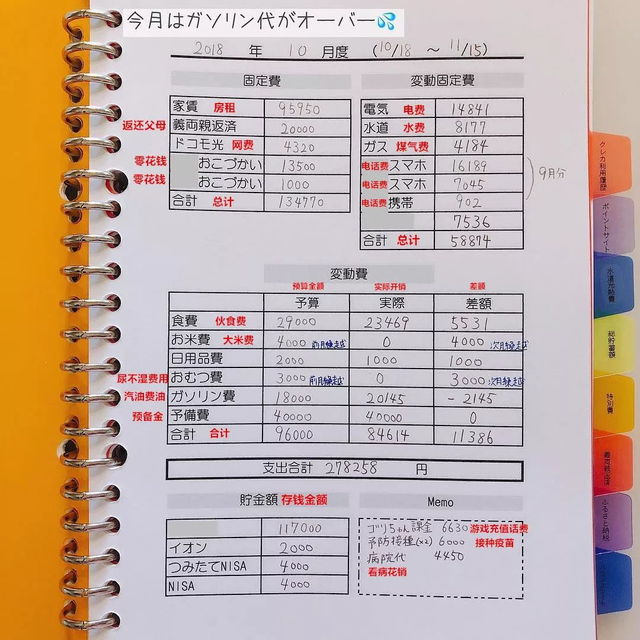 今月はガソリン代がオーバー💦
2018 年 10 月度 (10/18 ～ 11/15)
固定費
家賃 房租 95950
返还父母 義両親返済 20000
ドコモ光 网费 4320
零花钱 おこづかい 13500
零花钱 おこづかい 1000
合計 总计 134770
変動固定費
電気 电费 14841
水道 水费 8177
ガス 煤气费 4184
电话费 スマホ 16189
电话费 スマホ 7045
电话费 携帯 902
9月分
7536
合計 总计 58874
変動費
预算金额 实际开销 差额
予算 実際 差額
食費 伙食费 29000 23469 5531
お米費 大米费 4000 前月繰越 0 4000 次月繰越
日用品費 2000 1000 1000
尿不湿费用 おむつ費 3000 前月繰越 0 3000 次月繰越
汽油费油 ガソリン費 18000 20145 -2145
预备金 予備費 40000 40000 0
合計 合计 96000 84614 11386
支出合計 278258 円
貯金額 存钱金额
117000
イオン 2000
つみたてNISA 4000
NISA 4000
Memo
ゴリちゃん課金 6630 游戏充值话费
予防接種(×2) 6000 接种疫苗
病院代 4450
看病花销
クレカ利用履歴
ポイントサイト
水道光熱費
総貯蓄額
特別費
義両親返済
ふるさと納税